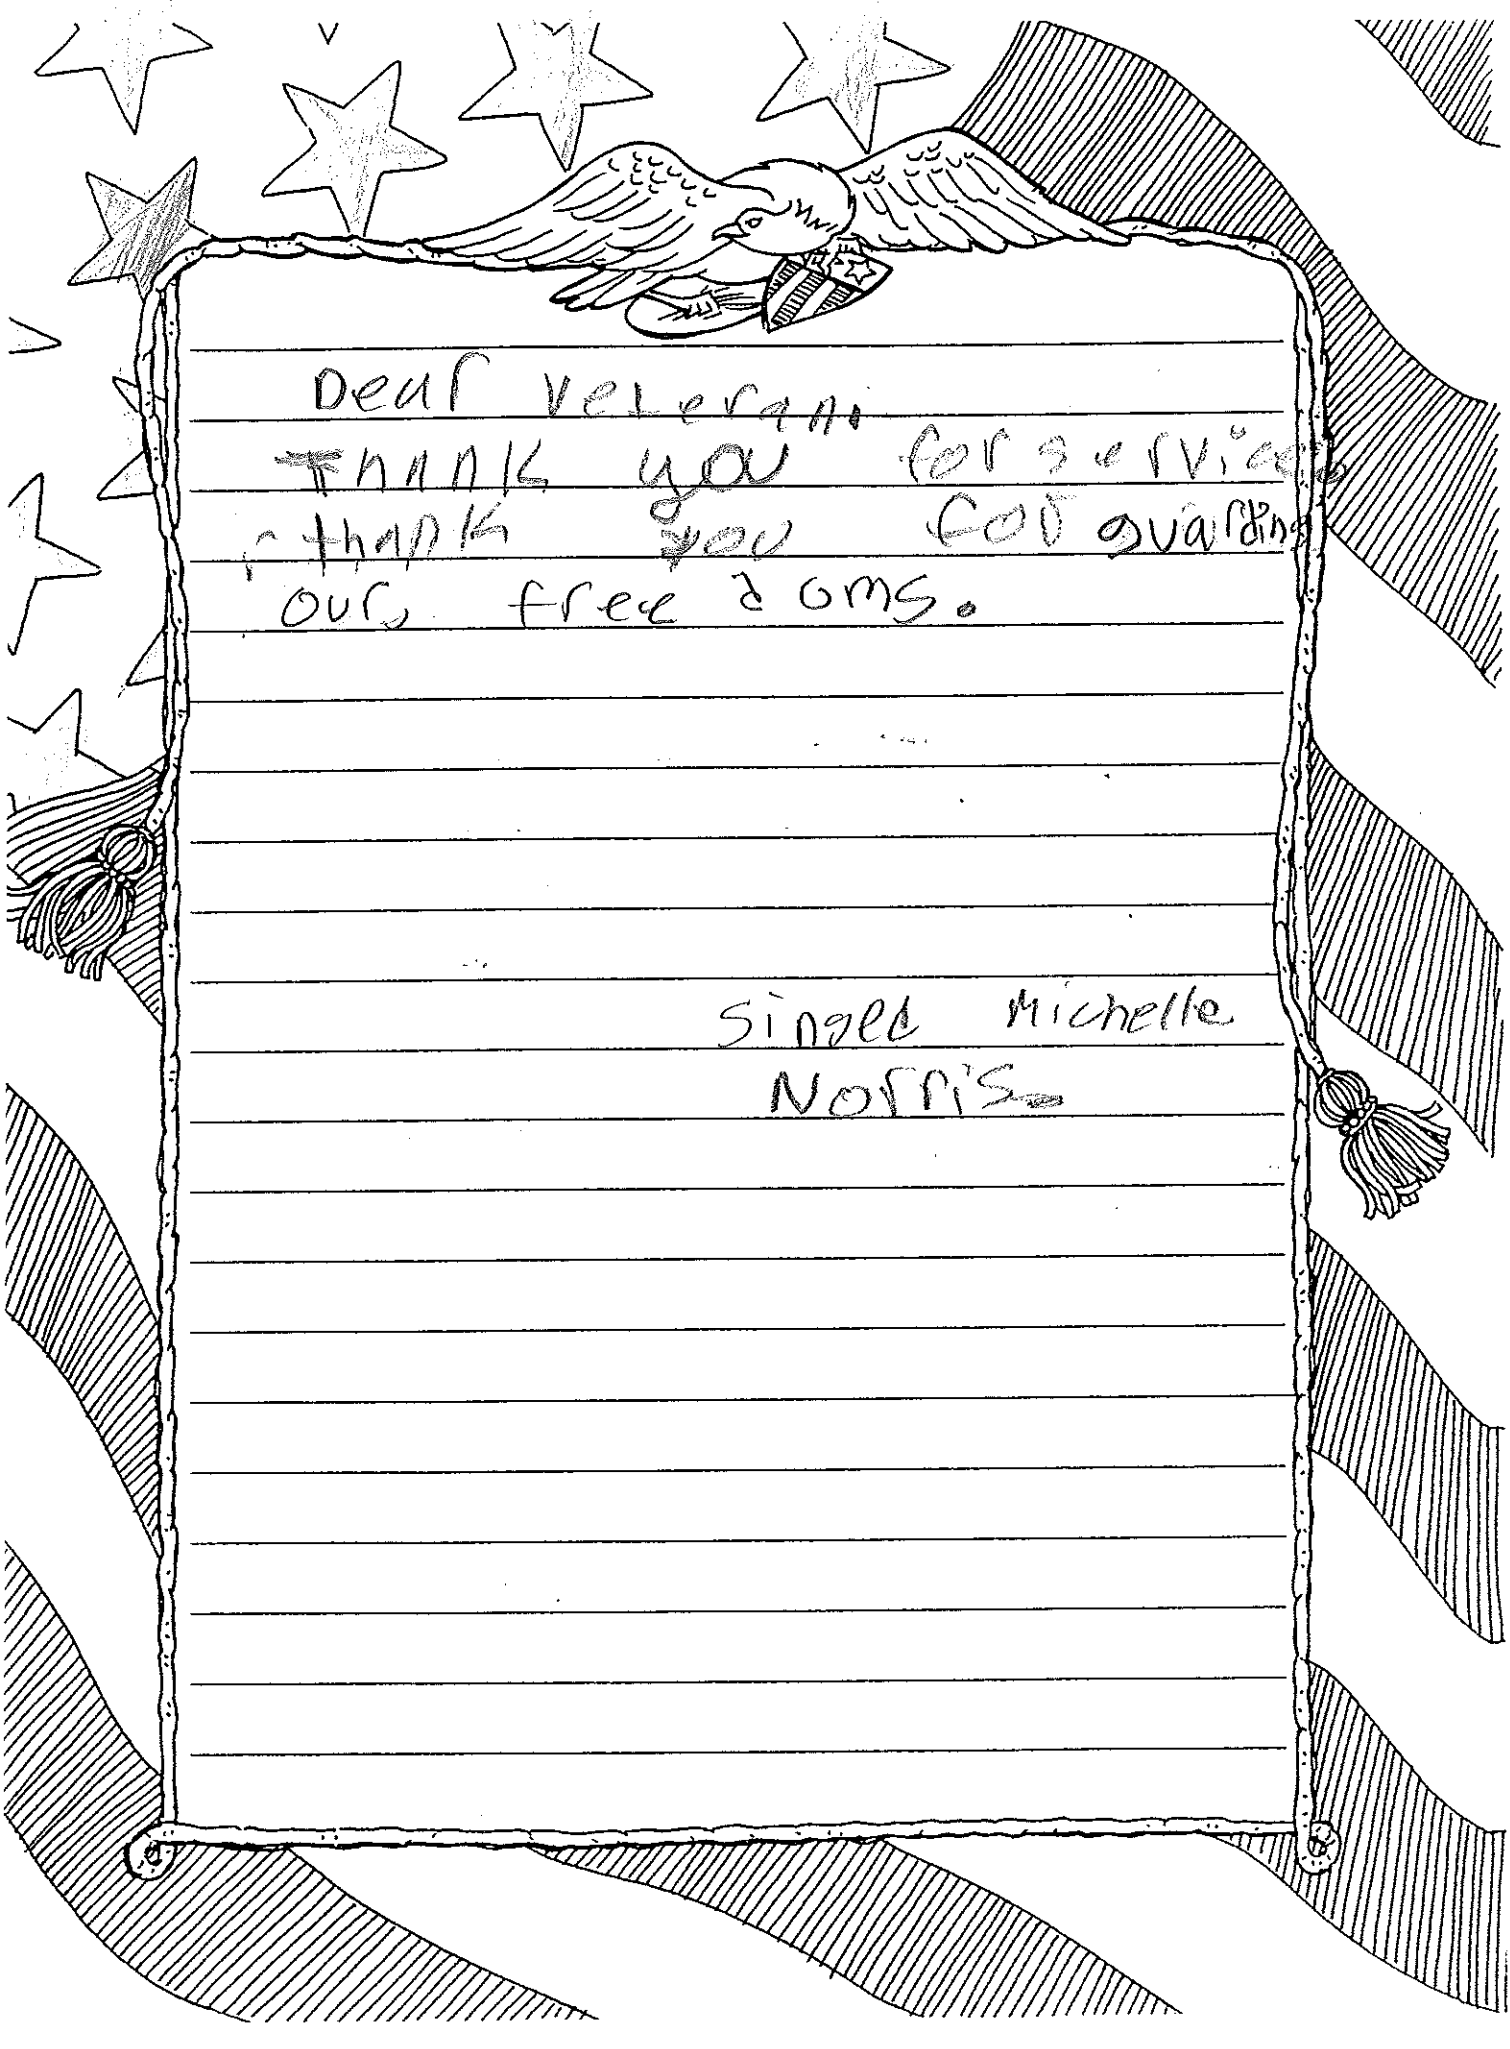 Dear Veteran.
Thank you for services
thank you for guarding
our free doms.
Singed Michelle
Norris